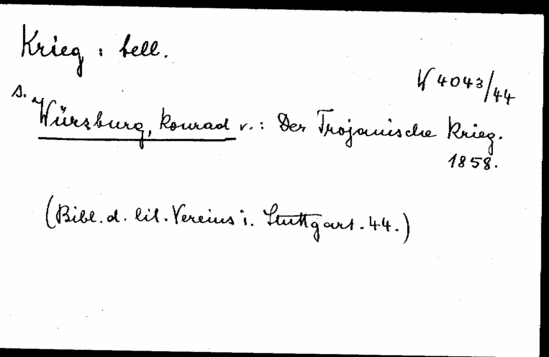 Krieg : bell.
W 4043/44
s. Würzburg, Konrad v.: Der Trojanische Krieg.
1858.
(Bibl. d. lit. Vereins i. Stuttgart. 44.)